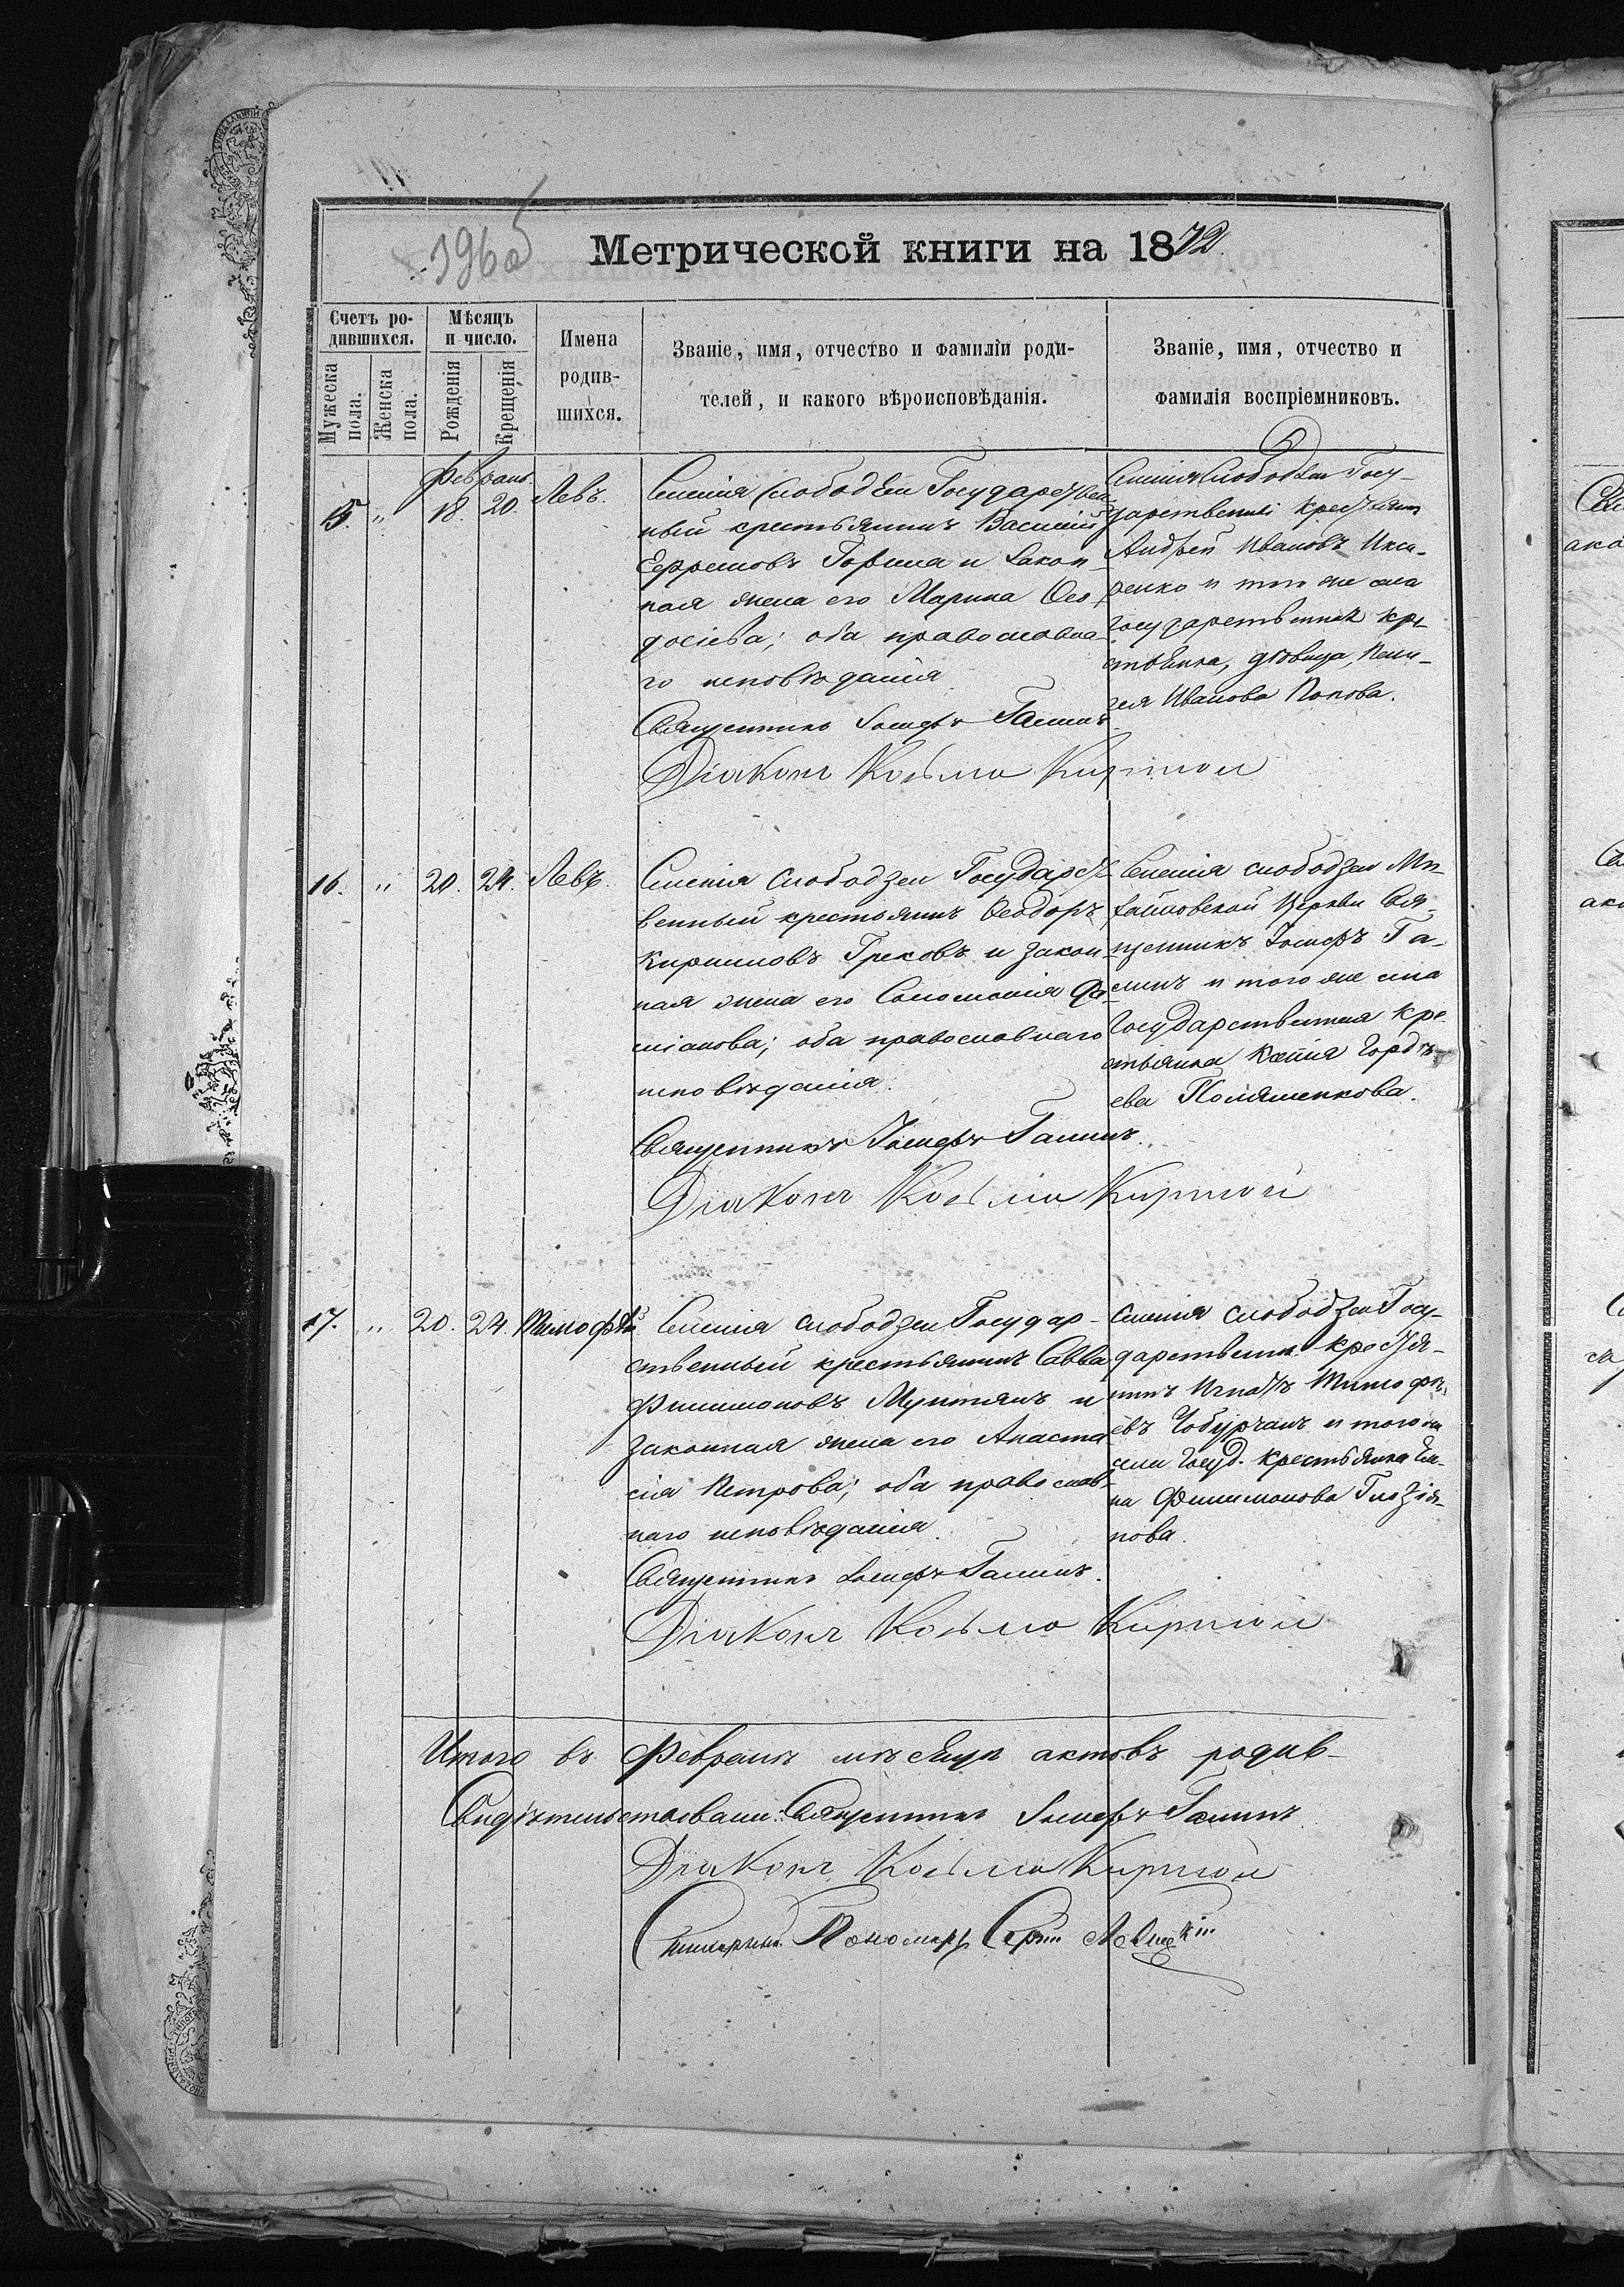 196 об
Метрической книги на 1872.
Счетъ ро-
дившихся.
Мѣсяцъ
и число.
Имена
родив-
шихся.
Званіе, имя, отчество и фамиліи роди-
телей, и какого вѣроисповѣданія.
Званіе, имя, отчество и
фамилія воспріемниковъ.
Мужеска
пола.
Женска
пола.
Рожденія
Крещенія
Февраль.
15. " 18. 20. Левъ.
Селенія Слободзеи Государствен
ный крестьянинъ Василій
Ефремовъ и закон-
ная жена его Марина Ѳео-
досіева; оба православна-
го исповѣданія
Священникъ Іосифъ Галинъ
Діаконъ Козьма
Селенія Слободзеи Госу-
дарственный крестьянинъ
Андрей Ивановъ
и того же села
государственная кре-
стьянка, дѣвица,
Иванова Попова.
16. " 20. 24. Левъ.
Селенія Слободзеи Государст-
венный крестьянинъ Ѳеодоръ
Кирилловъ Грековъ и закон-
ная жена его Соломонія Да-
міанова; оба православнаго
исповѣданія.
Священникъ Іосифъ Галинъ.
Діаконъ Козьма
Селенія слободзеи Ми-
хайловской Церкви Свя-
щенникъ Іосифъ Га-
линъ и того же села
Государственная кре-
стьянка Ксенія Гордѣ-
ева
17. " 20. 24. Тимофѣй
Селенія слободзеи Государ-
ственный крестьянинъ Савва
Филимоновъ Мунтянъ и
законная жена его Анаста-
сія Петрова; оба православ-
наго исповѣданія.
Священникъ Іосифъ Галинъ.
Діаконъ Козьма
Селенія слободзеи Госу-
дарственн. крестья-
нинъ Игнатъ Тимофѣ-
евъ Чобурчанъ и того же
села Госуд. крестьянка Еле-
на Филимонова
нова.
Итого въ Февралѣ мѣсяцѣ актовъ родив-
Свидѣтельствовали: Священникъ Іосифъ Галинъ
Діаконъ Козьма
Пономарь